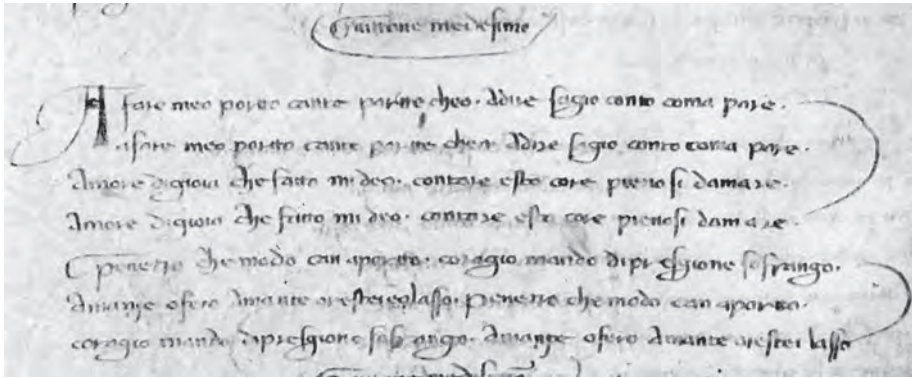 Guittone medesimo
A fare meo porto cante partte cheo. Adire sagio conto coma pare.
afare meo porto cante partte cheo Adire sagio conto coma pare.
Amore digioia che fatto mideo. contare esto core pieno si damare.
Amore digioia che fatto mideo. contare esto core pienosi damare.
Penetro che modo can aportto. coragio mando dipresgione sofrango.
Amante ofero Amante lasso. Penetro che modo can aporto.
coragio mando dipresgione Amante ofero Amante orestei lasso